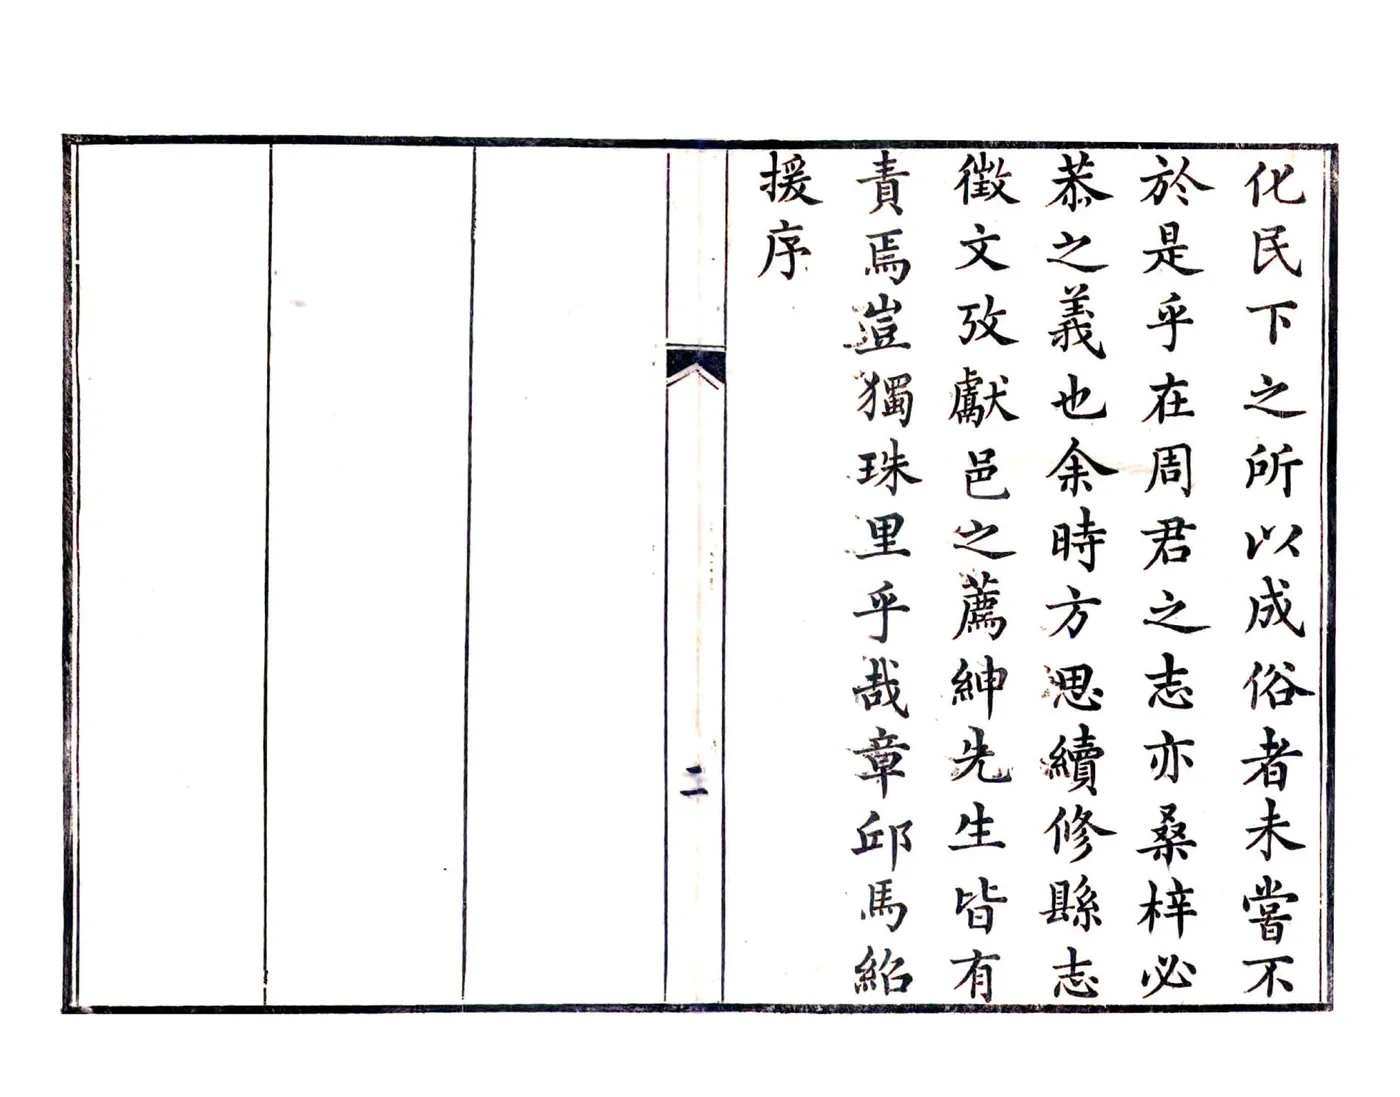 化民下之所以成俗者未嘗不
於是乎在周君之志亦桑梓必
恭之義也余時方思續修縣志
徵文攷獻邑之薦紳先生皆有
責焉豈獨珠里乎哉章邱馬紹
援序
二